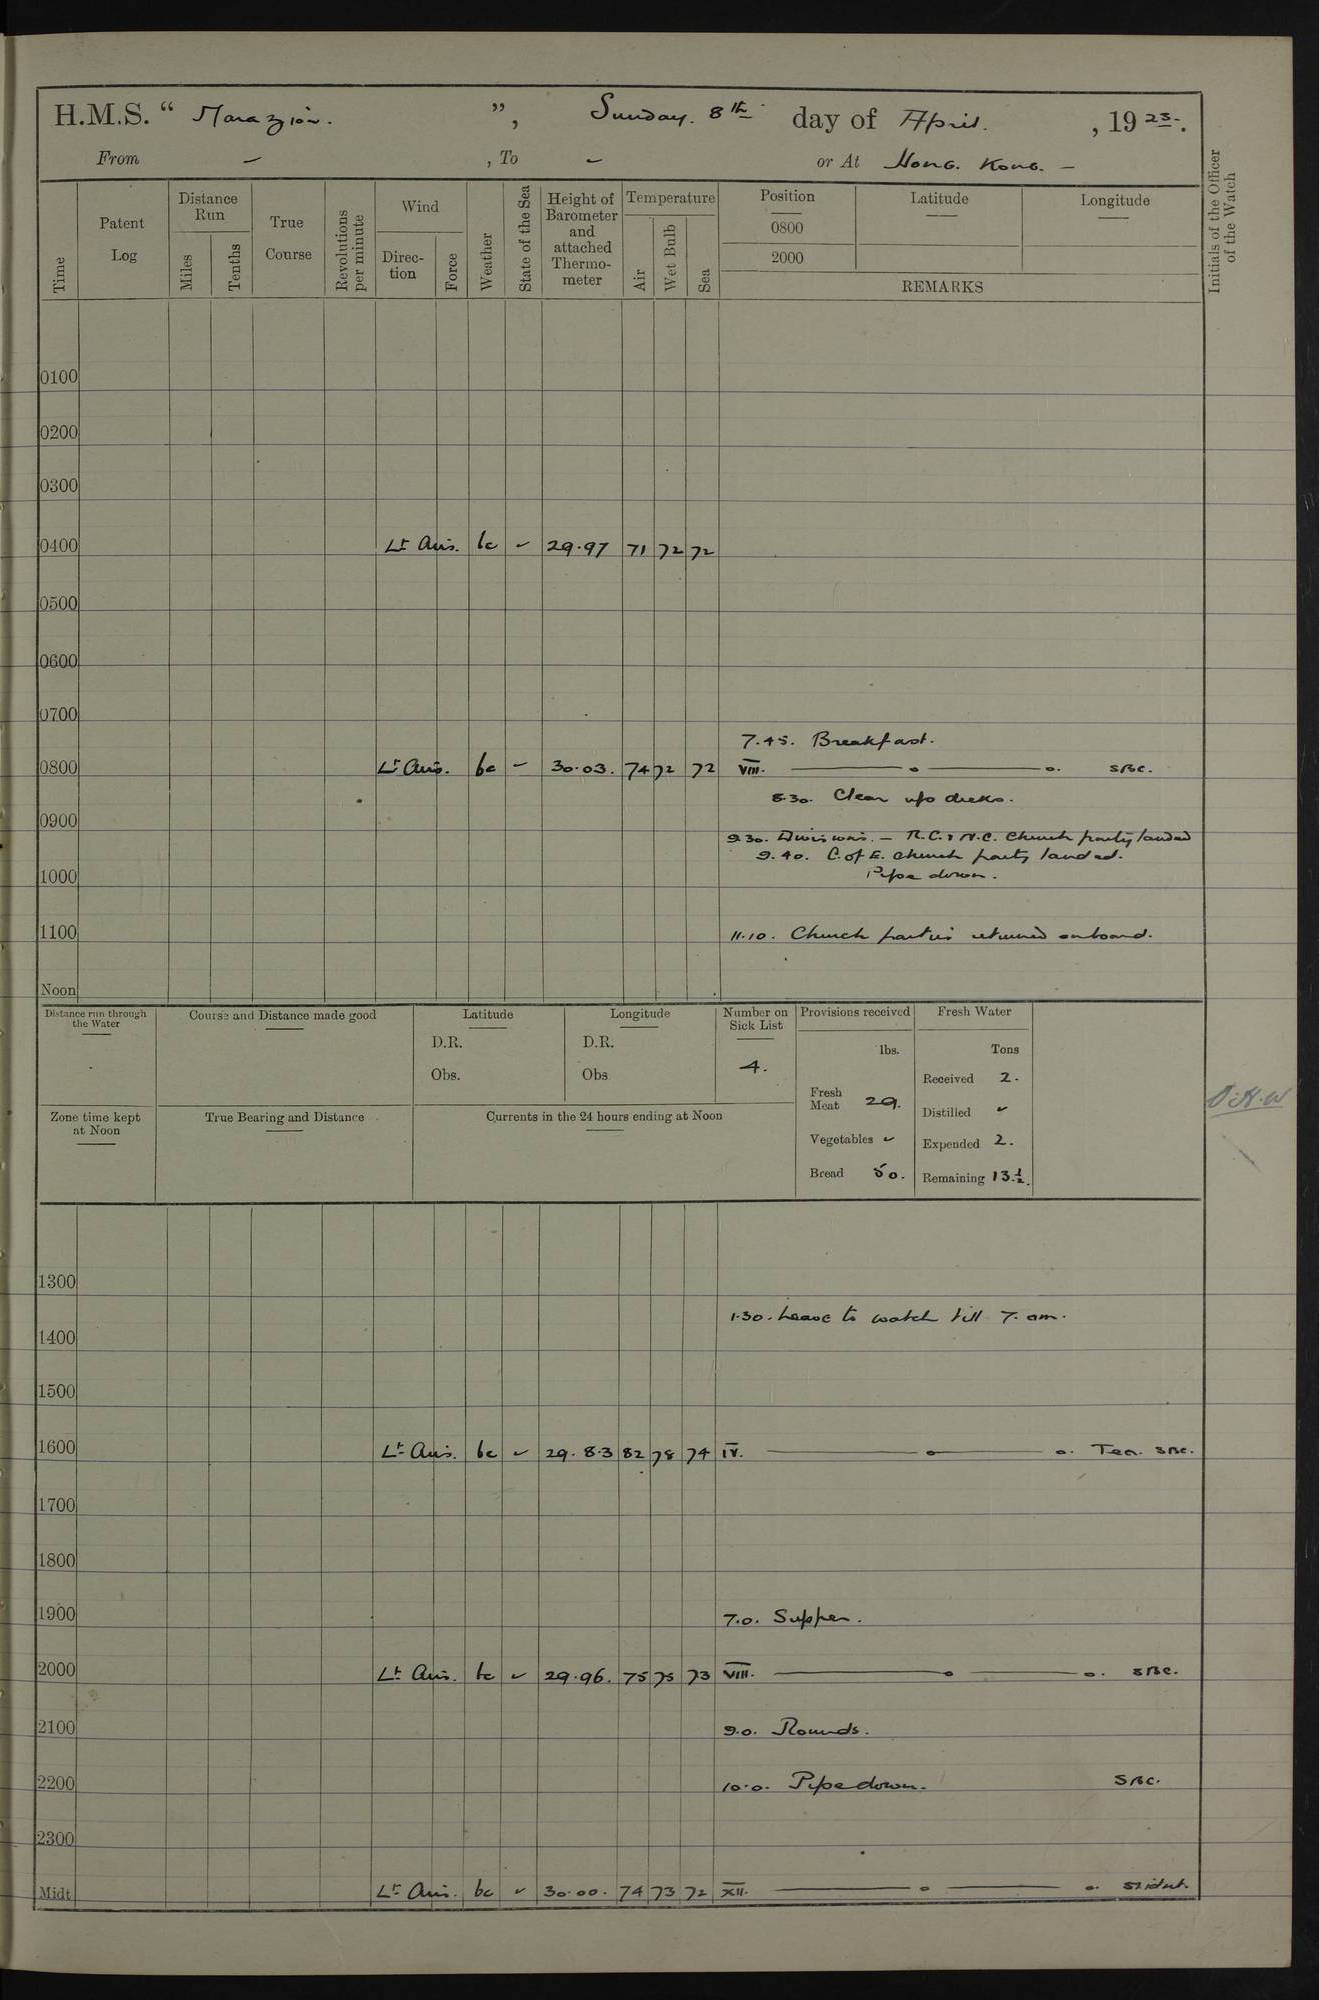 H.M.S. “ Marazion. ”, Sunday. 8th day of April. , 19 23.
From – , To – or At Hong. Kong. –
Time
Patent Log
Distance Run
Miles
Tenths
True Course
Revolutions per minute
Wind
Direction
Force
Weather
State of the Sea
Height of Barometer and attached Thermometer
Temperature
Air
Wet Bulb
Sea
Position
0800
2000
Latitude
Longitude
REMARKS
Initials of the Officer of the Watch
0100
0200
0300
0400 Lt Airs. bc ✓ 29.97 71 72 72
0500
0600
0700
7.45. Breakfast.
0800 Lt Airs. bc – 30.03. 74 72 72 VIII. SBC.
8.30. Clear up decks.
0900
9.30. Divisions. – R.C. & N.C. Church party landed
9.40. C. of E. church party landed.
1000 Pipe down.
1100 11.10. Church parties returned onboard.
Noon
Distance run through the Water
Course and Distance made good
Latitude
D.R.
Obs.
Longitude
D.R.
Obs
Number on Sick List
4.
Provisions received
lbs.
Fresh Meat 29.
Vegetables ✓
Bread 50.
Fresh Water
Tons
Received 2.
Distilled ✓
Expended 2.
Remaining 13.½.
Zone time kept at Noon
True Bearing and Distance
Currents in the 24 hours ending at Noon
1300
1.30. Leave to watch till 7. am.
1400
1500
1600 Lt Airs. bc ✓ 29.83 82 78 74 IV. Tea. SBC.
1700
1800
1900 7.0. Supper.
2000 Lt Airs. bc ✓ 29.96. 75 75 73 VIII. SBC.
2100 9.0. Rounds.
2200 10.0. Pipe down. SBC.
2300
Midt Lt Airs. bc ✓ 30.00. 74 73 72 XII.